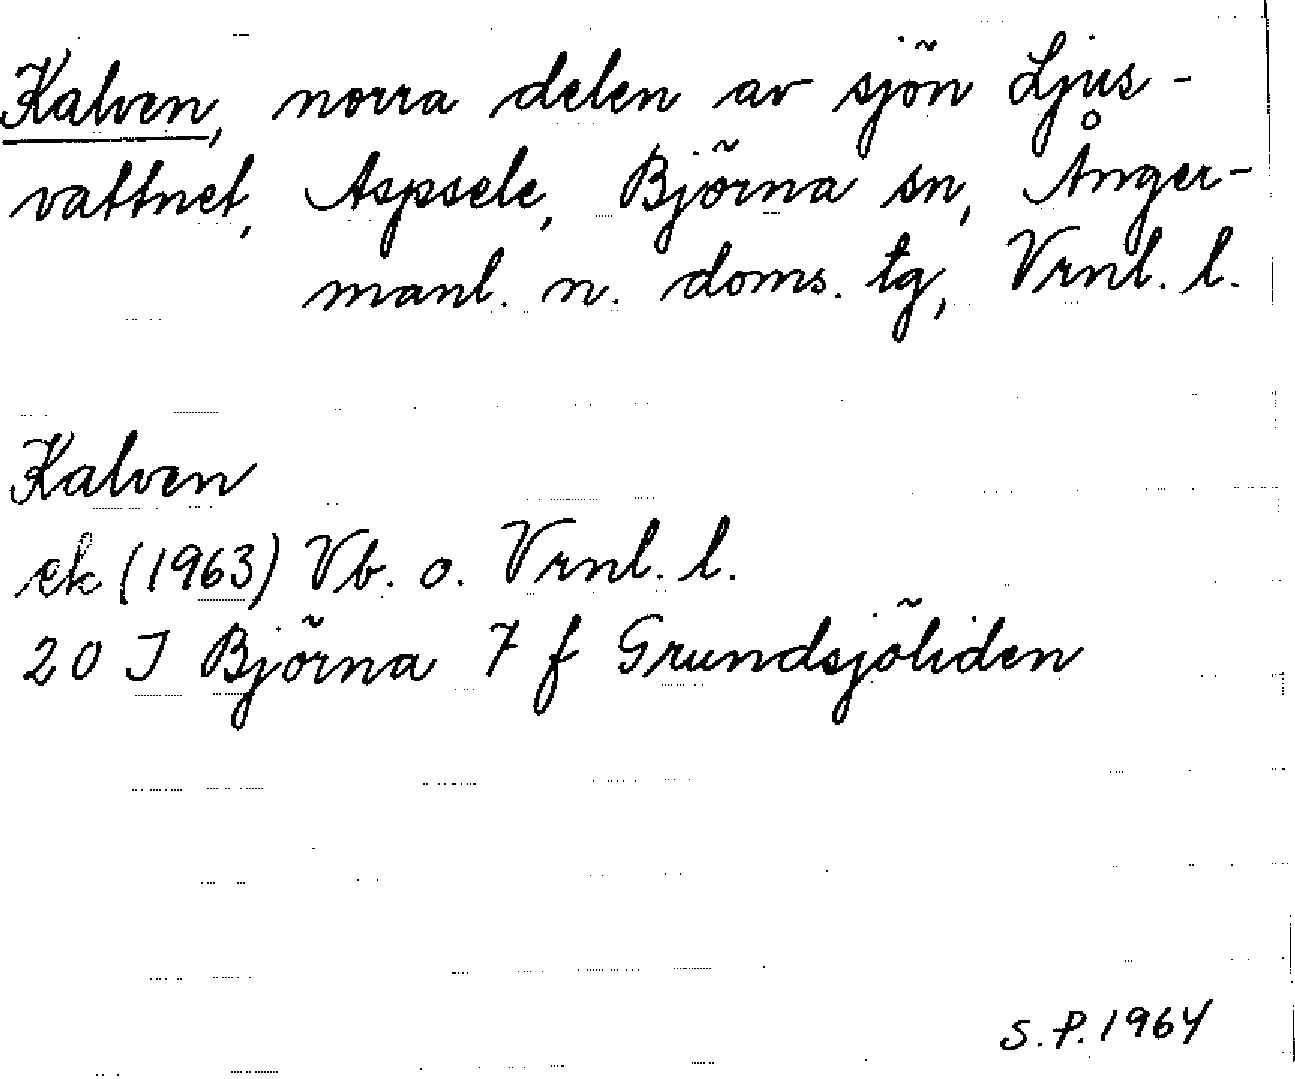 Kalven, norra delen av sjön Ljus-
vattnet, Aspsele, Björna sn, Ånger-
manl. n. doms. tg, Vrnl. l.
Kalven
ek (1963) Vb. o. Vrnl. l.
20 I Björna 7 f Grundsjöliden
S.P. 1964